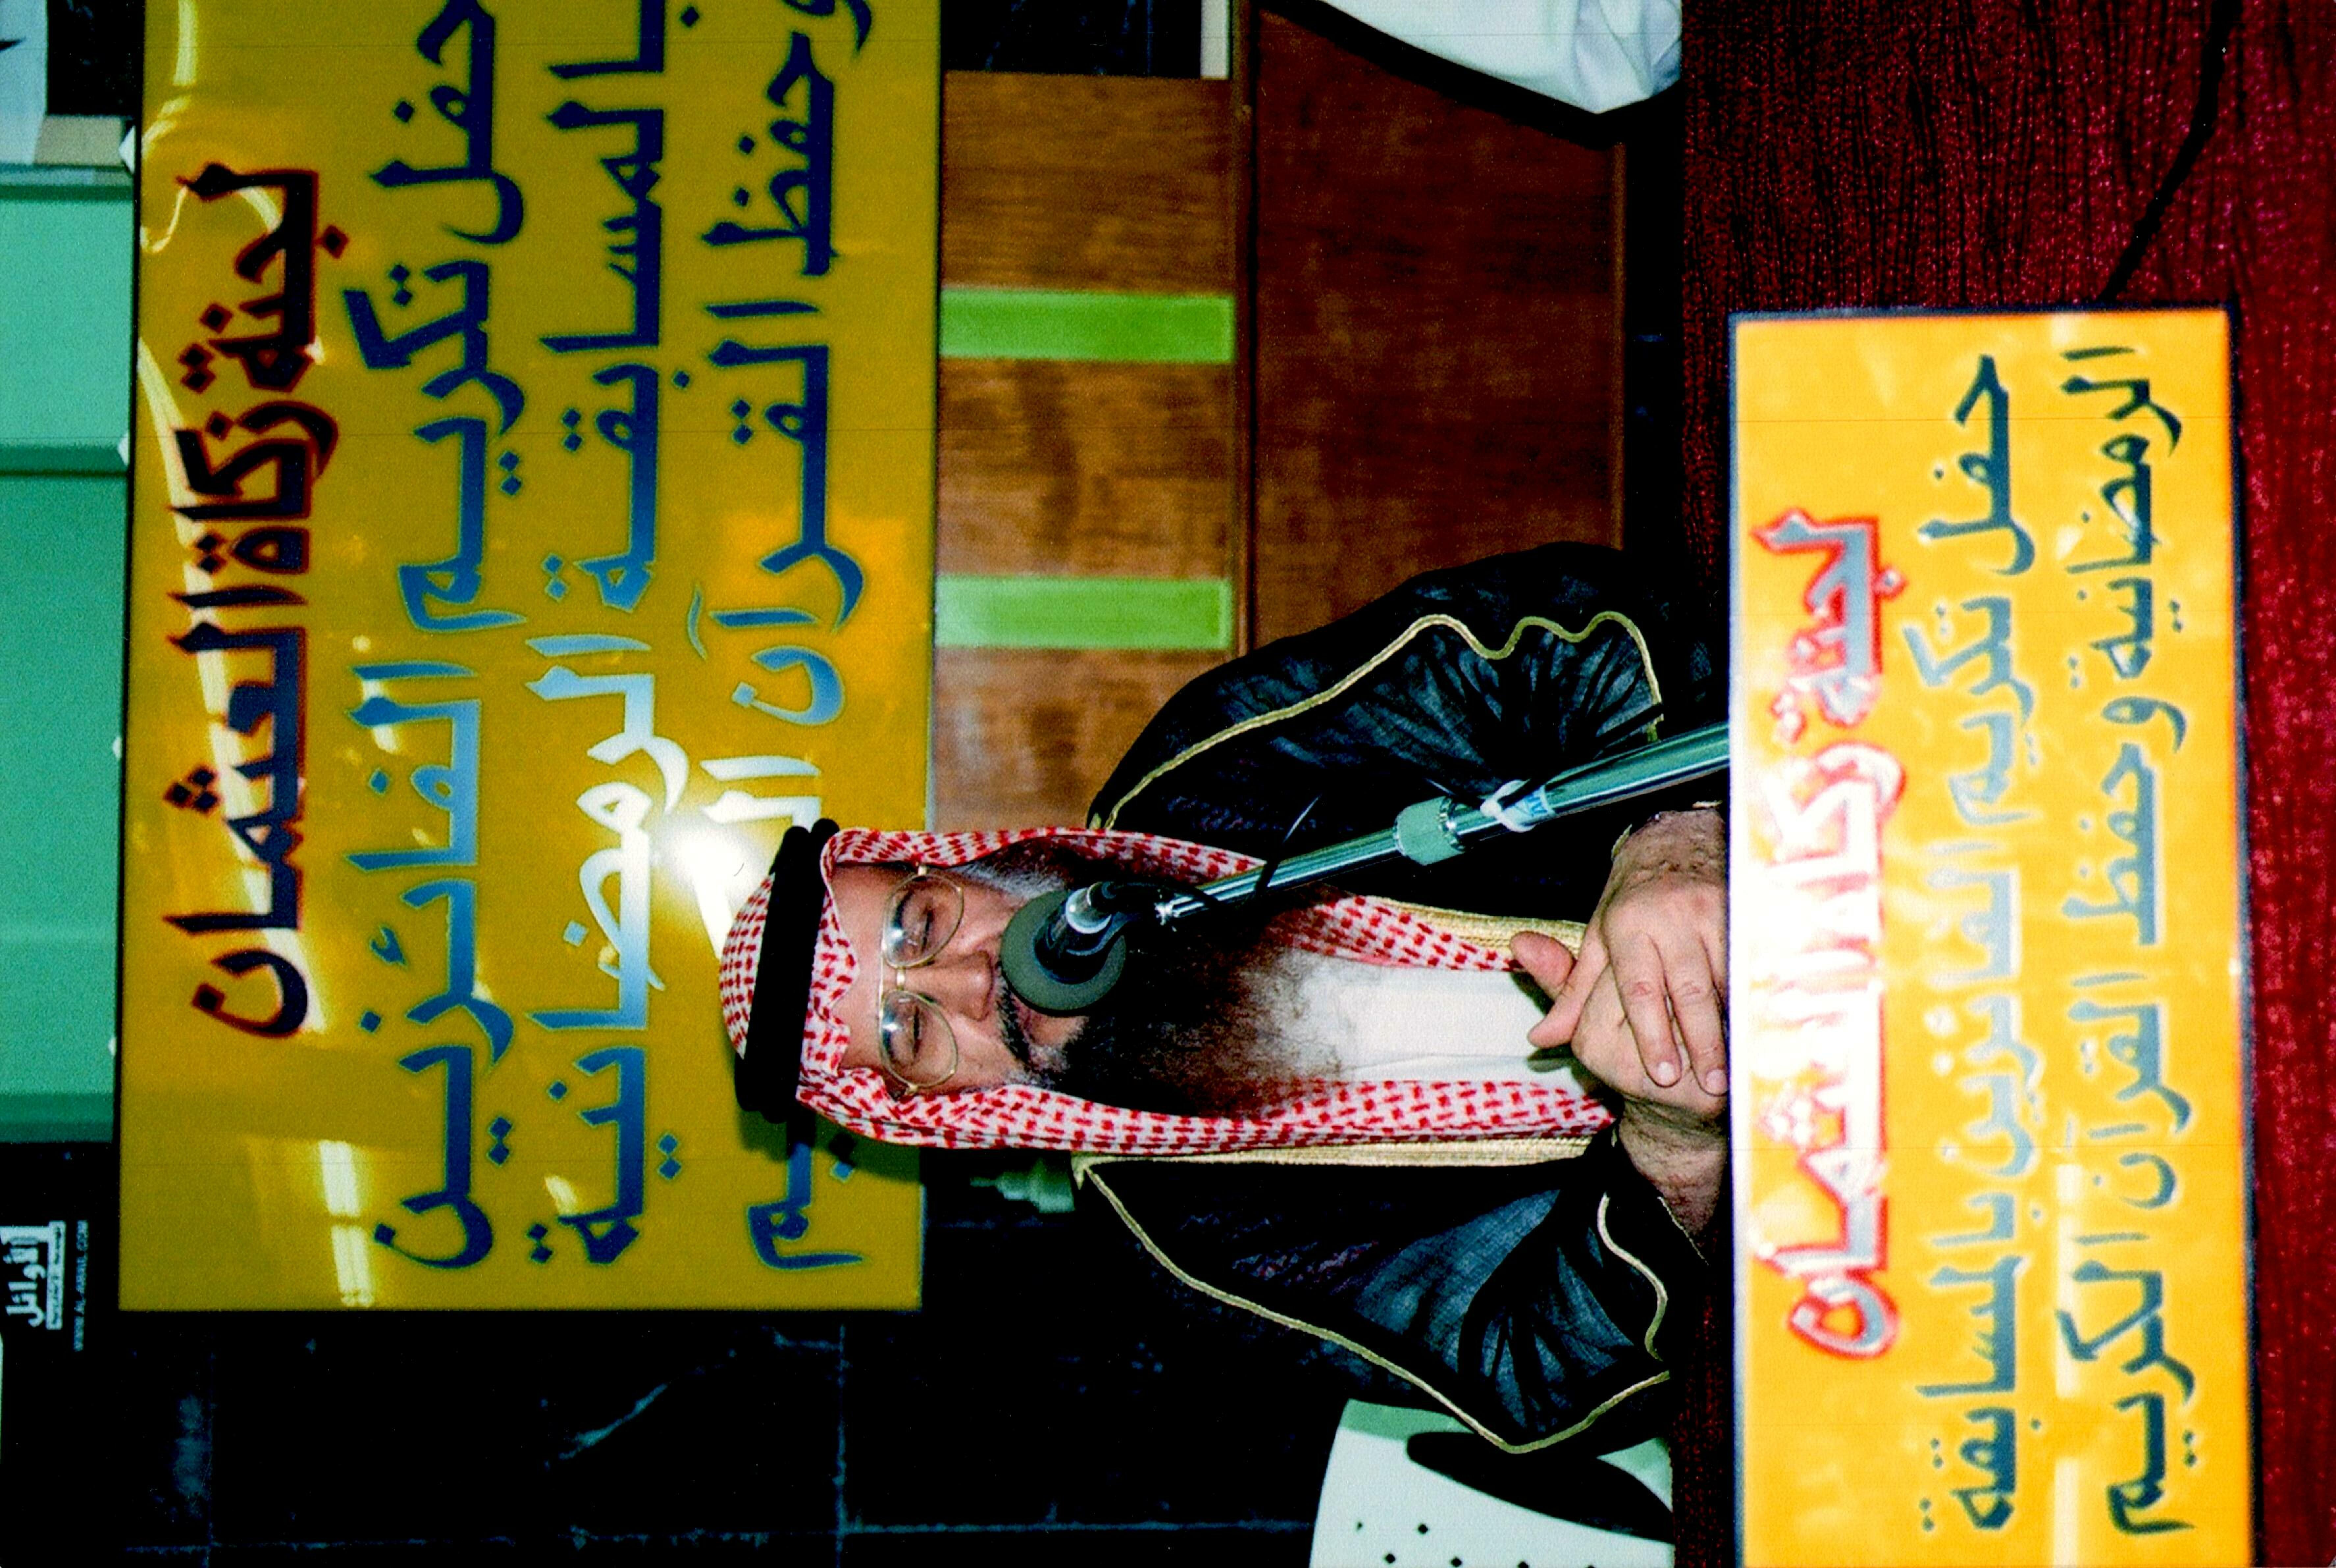 لجنة زكاة العثمان
حفل تكريم الفائزين
بالمسابقة الرمضانية
وحفظ القرآن الـ يم
الأوائل
WWW.AL-AWAIL.COM
لجنة زكاة العثمان
حفل تكريم الفائزين بالمسابقة
الرمضانية وحفظ القرآن الكريم